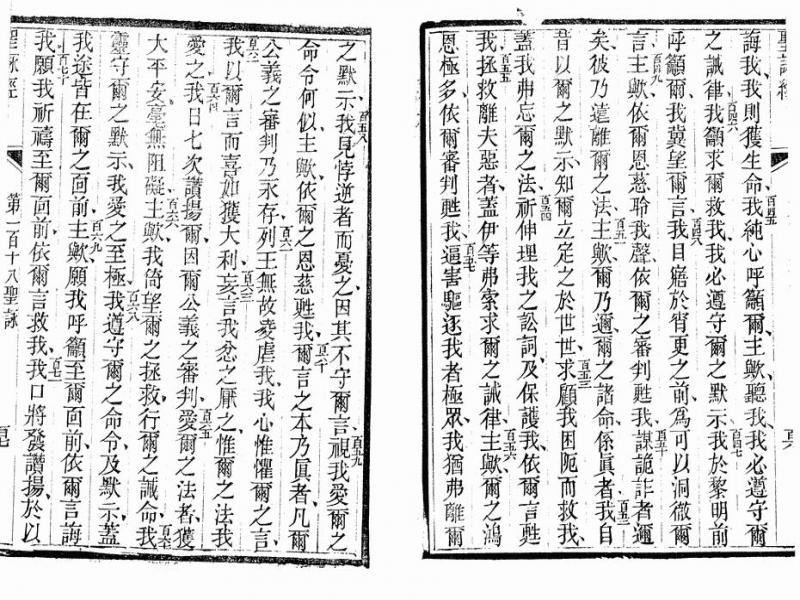 聖詠經
誨我我則獲生命百四五我純心呼籲爾主聽我我必遵守爾
之誡律百四六我籲求爾救我我必遵守爾之默示百四七我於黎明前
呼籲爾我冀望爾言百四八我目寤於宵更之前為可以洞徹爾
言百四九主歟依爾恩慈聆我聲依爾之審判甦我百五十謀詭詐者邇
矣彼乃遠離爾之法百五一主歟爾乃邇爾之諸命係眞者百五二我自
昔以爾之默示知爾立定之於世世百五三求顧我困阨而救我
蓋我弗忘爾之法百五四祈伸理我之訟詞及保護我依爾言甦
我百五五拯救離夫惡者蓋伊等弗索求爾之誡律百五六主歟爾之鴻
恩極多依爾審判甦我百五七逼害驅逐我者極眾我猶弗離爾
百六
之默示百五八我見悖逆者而憂之因其不守爾言百五九視我愛爾之
命令何似主歟依爾之恩慈甦我百六十爾言之本乃眞者凡爾
公義之審判乃永存百六一列王無故凌虐我我心惟懼爾之言
百六二我以爾言而喜如獲大利百六三妄言我忿之厭之惟爾之法我
愛之百六四我日七次讚揚爾因爾公義之審判百六五愛爾之法者獲
大平安毫無阻礙百六六主歟我倚望爾之拯救行爾之誡命百六七我
靈守爾之默示我愛之至極百六八我遵守爾之命令及默示蓋
我途皆在爾之面前百六九主歟願我呼籲至爾面前依爾言誨
我百七十願我祈禱至爾面前依爾言救我百七一我口將發讚揚於以
聖詠經
第一百十八聖詠
百七